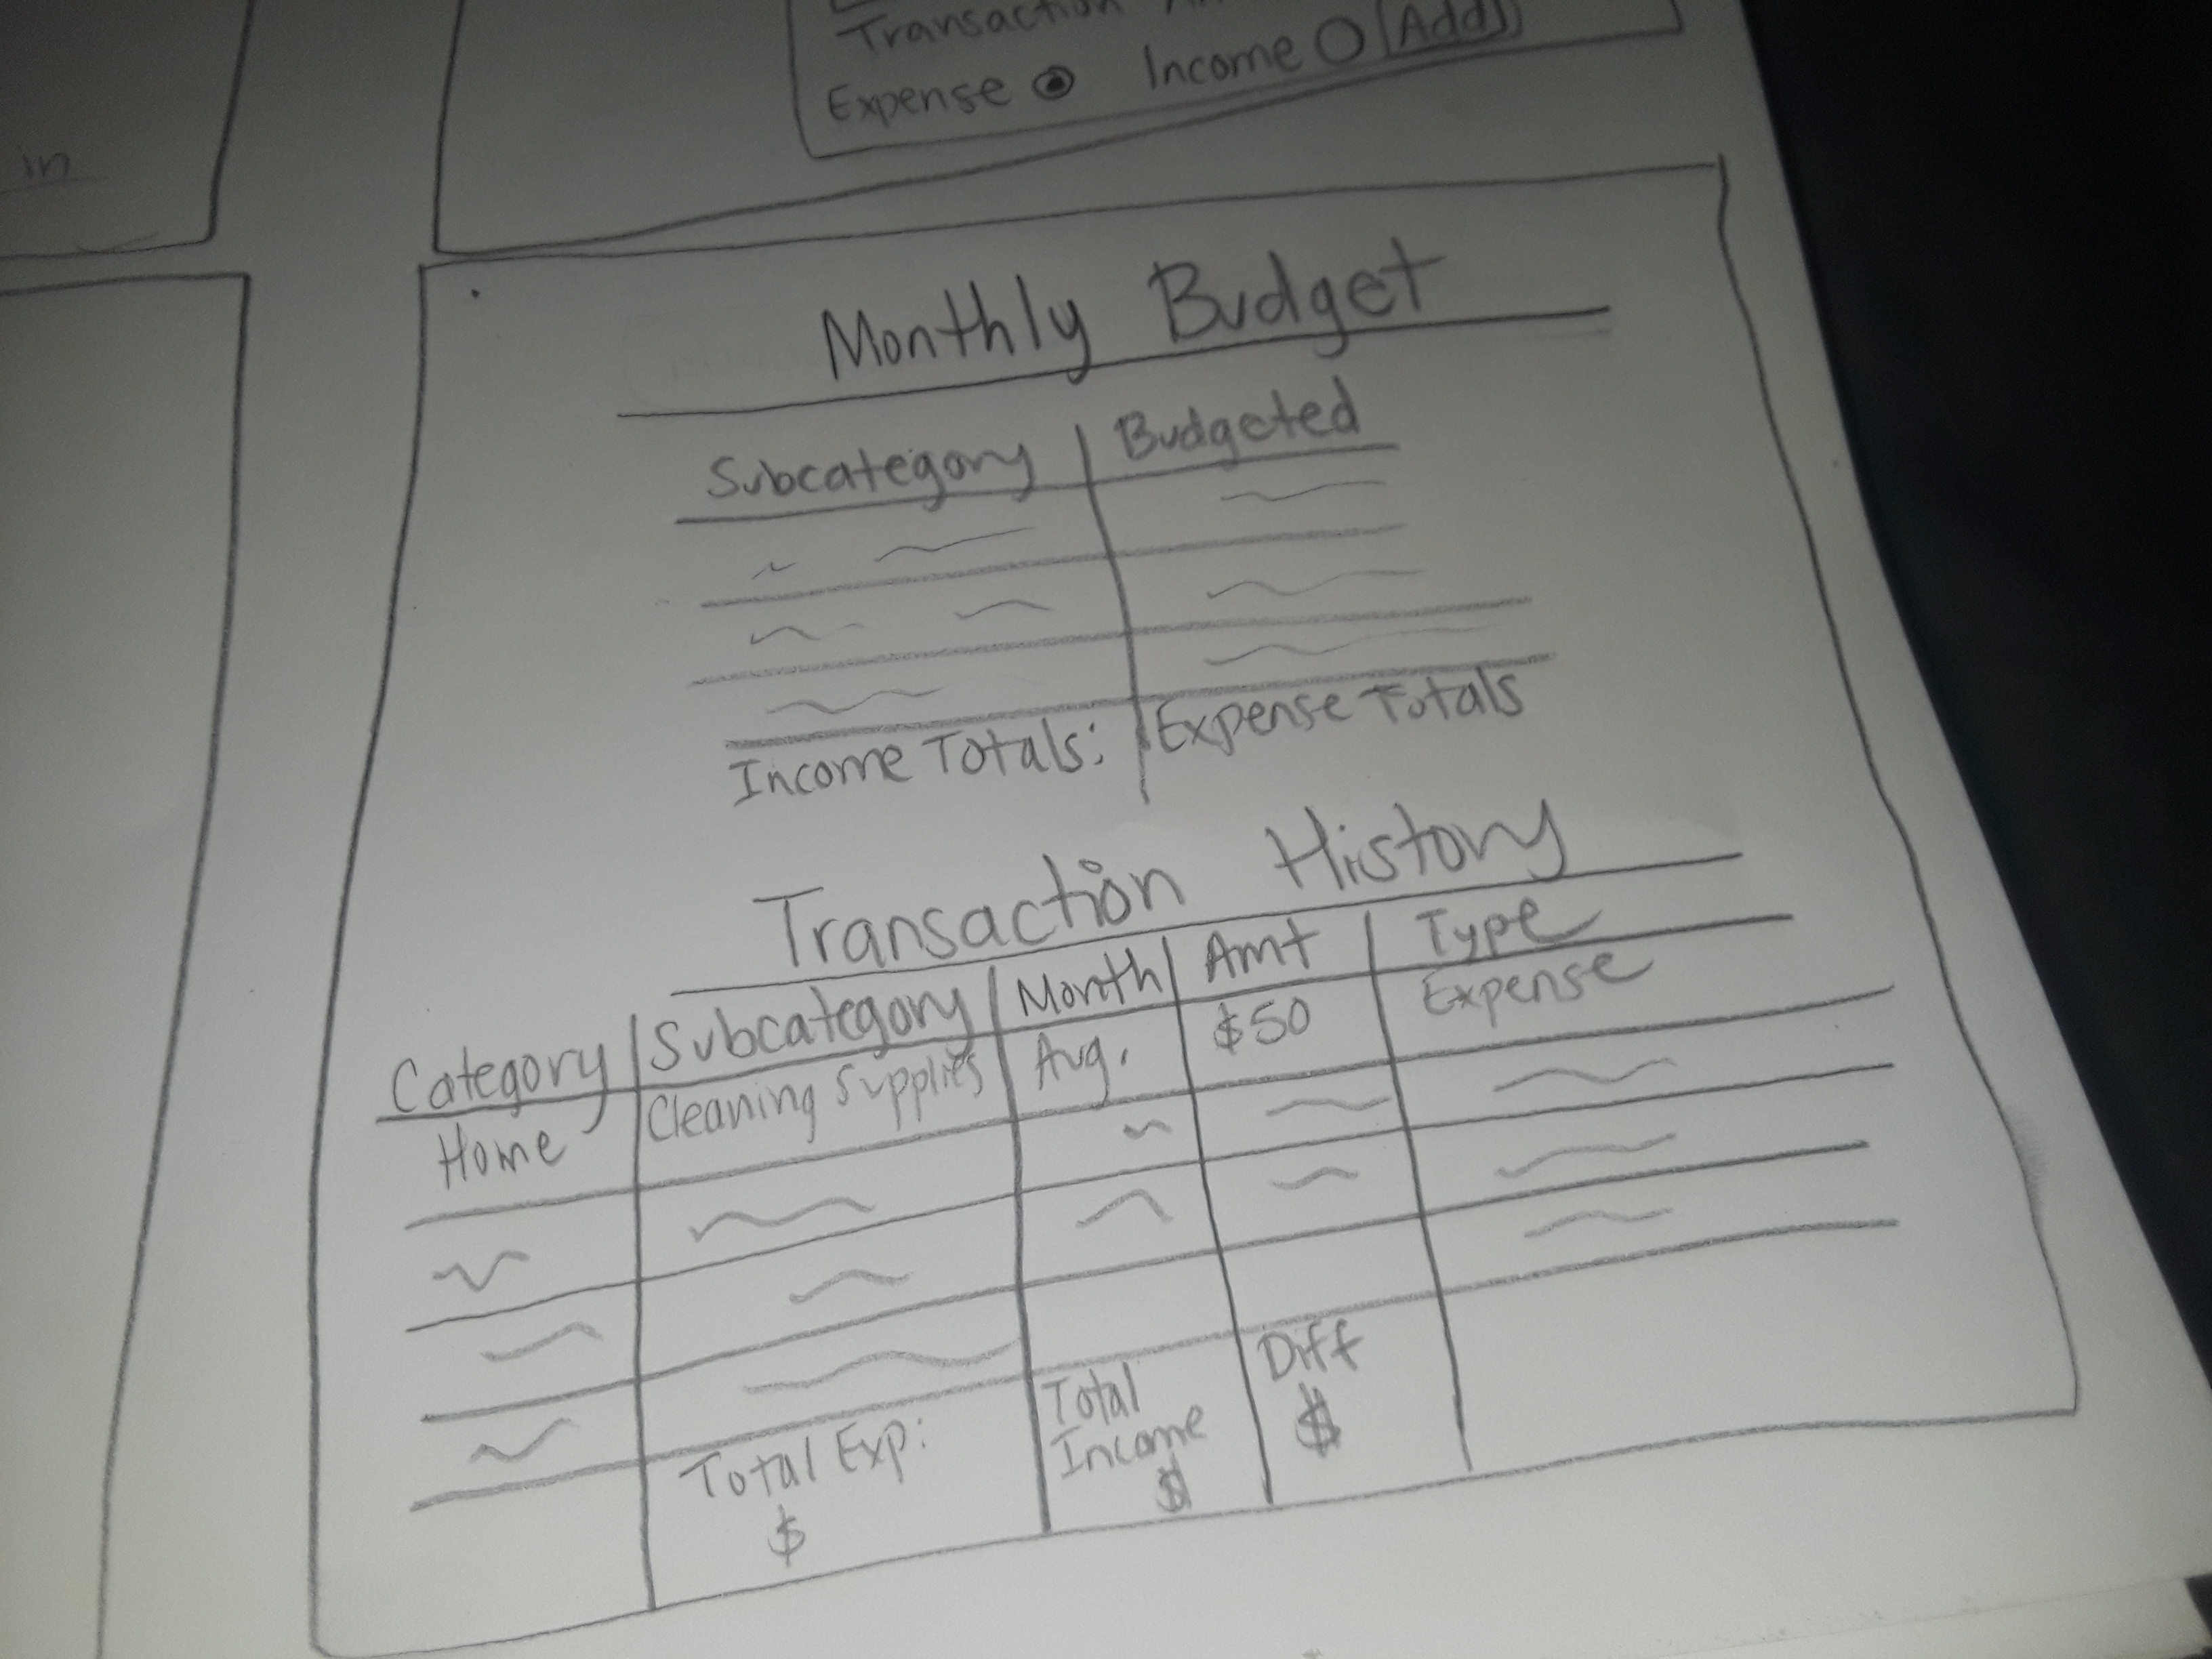 in
Transaction
Expense Income Add
Monthly Budget
Subcategory Budgeted
Income Totals: Expense Totals
Transaction History
Category Subcategory Month Amt Type
Home Cleaning Supplies Aug. $50 Expense
Total Exp: Total Income Diff
$ $ $